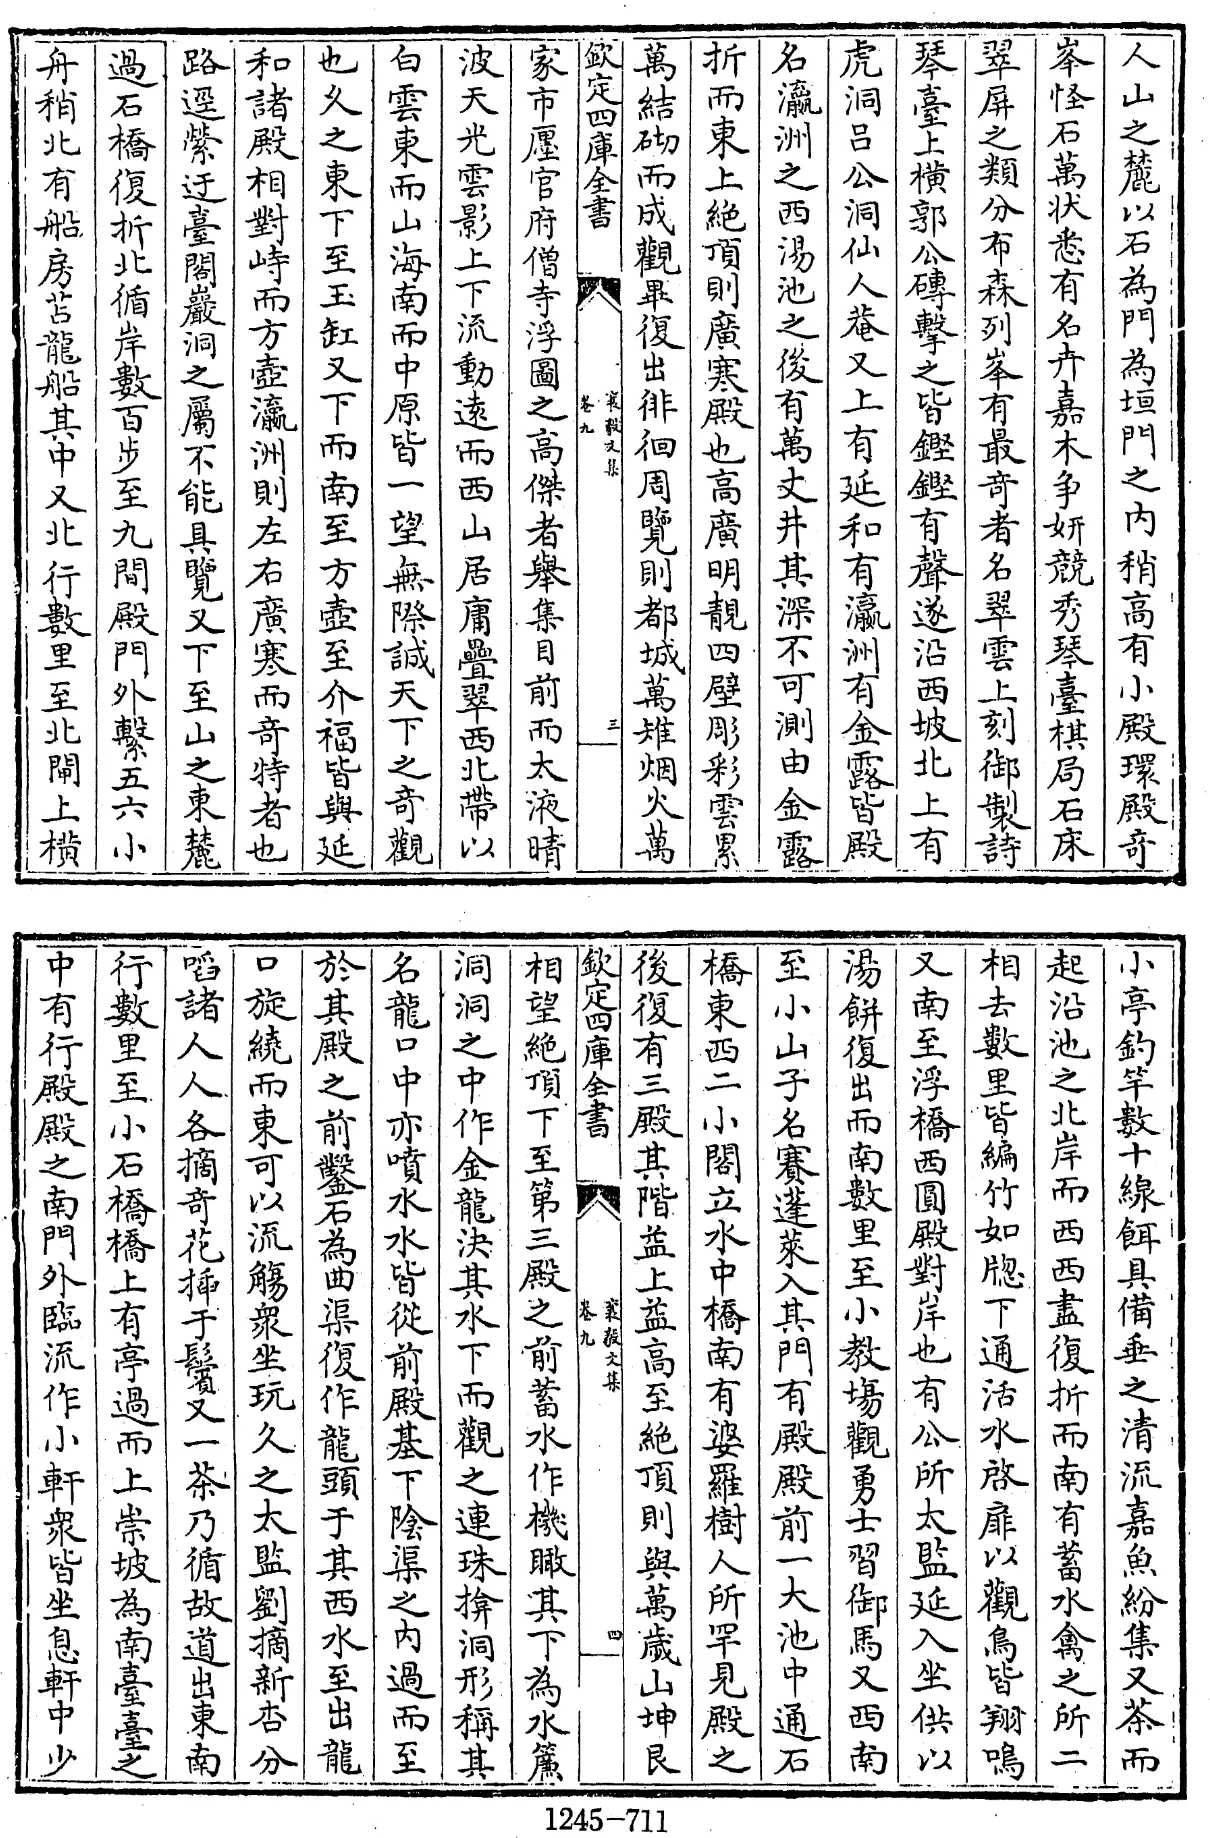 人山之麓以石為門為垣門之内稍高有小殿環殿奇
峯怪石萬狀悉有名卉嘉木争妍競秀琴臺棋局石床
翠屏之類分布森列峯有最奇者名翠雲上刻御製詩
琴臺上橫郭公磚擊之皆鏗鏗有聲遂沿西坡北上有
虎洞吕公洞仙人菴又上有延和有瀛洲有金露皆殿
名瀛洲之西湯池之後有萬丈井其深不可測由金露
折而東上絶頂則廣寒殿也高廣明靚四壁彫彩雲累
萬結砌而成觀畢復出徘徊周覽則都城萬雉烟火萬
欽定四庫全書
襄毅文集
卷九
三
家市廛官府僧寺浮圖之高傑者舉集目前而太液晴
波天光雲影上下流動逺而西山居庸疊翠西北帶以
白雲東而山海南而中原皆一望無際誠天下之奇觀
也乆之東下至玉缸又下而南至方壺至介福皆與延
和諸殿相對峙而方壺瀛洲則左右廣寒而奇特者也
路逕縈迂臺閣巖洞之屬不能具覽又下至山之東麓
過石橋復折北循岸數百步至九間殿門外繫五六小
舟稍北有船房苫龍船其中又北行數里至北閘上横
小亭釣竿數十線餌具備垂之清流嘉魚紛集又茶而
起沿池之北岸而西西盡復折而南有蓄水禽之所二
相去數里皆編竹如牎下通活水啓扉以觀鳥皆翔鳴
又南至浮橋西圓殿對岸也有公所太監延入坐供以
湯餅復出而南數里至小教場觀勇士習御馬又西南
至小山子名賽蓬萊入其門有殿殿前一大池中通石
橋東西二小閣立水中橋南有娑羅樹人所罕見殿之
後復有三殿其階益上益高至絶頂則與萬歲山坤艮
欽定四庫全書
襄毅文集
卷九
四
相望絶頂下至第三殿之前蓄水作機瞰其下為水簾
洞洞之中作金龍決其水下而觀之連珠揜洞形稱其
名龍口中亦噴水水皆從前殿基下隂渠之内過而至
於其殿之前鑿石為曲渠復作龍頭于其西水至出龍
口旋繞而東可以流觴衆坐玩久之太監劉摘新杏分
㗖諸人人各摘奇花揷于鬢又一茶乃循故道出東南
行數里至小石橋橋上有亭過而上崇坡為南臺臺之
中有行殿殿之南門外臨流作小軒衆皆坐息軒中少
1245-711